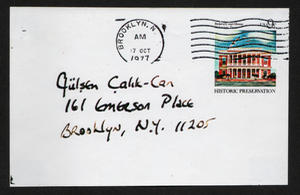 BROOKLYN, N.
AM
17 OCT
1977
9¢
HISTORIC PRESERVATION
Gülsen Calik-Can
161 Emerson Place
Brooklyn, N.Y. 11205